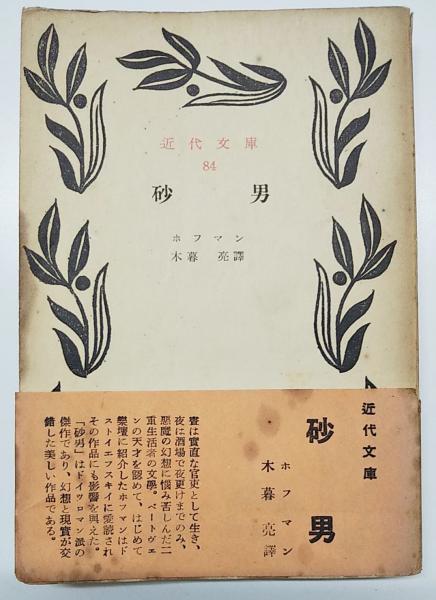 近代文庫
84
砂男
ホフマン
木暮 亮譯
近代文庫
砂男
ホフマン
木暮 亮譯
晝は實直な官吏として生き、
夜は酒場で夜更けまでのみ、
惡魔の幻想に惱み苦しんだ二
重生活者の文學。ベートヴェ
ンの天才を認めて、はじめて
樂壇に紹介したホフマンはド
ストイエフスキイに愛読され
その作品にも影響を與えた。
「砂男」はドイツロマン派の
傑作であり、幻想と現實が交
錯した美しい作品である。